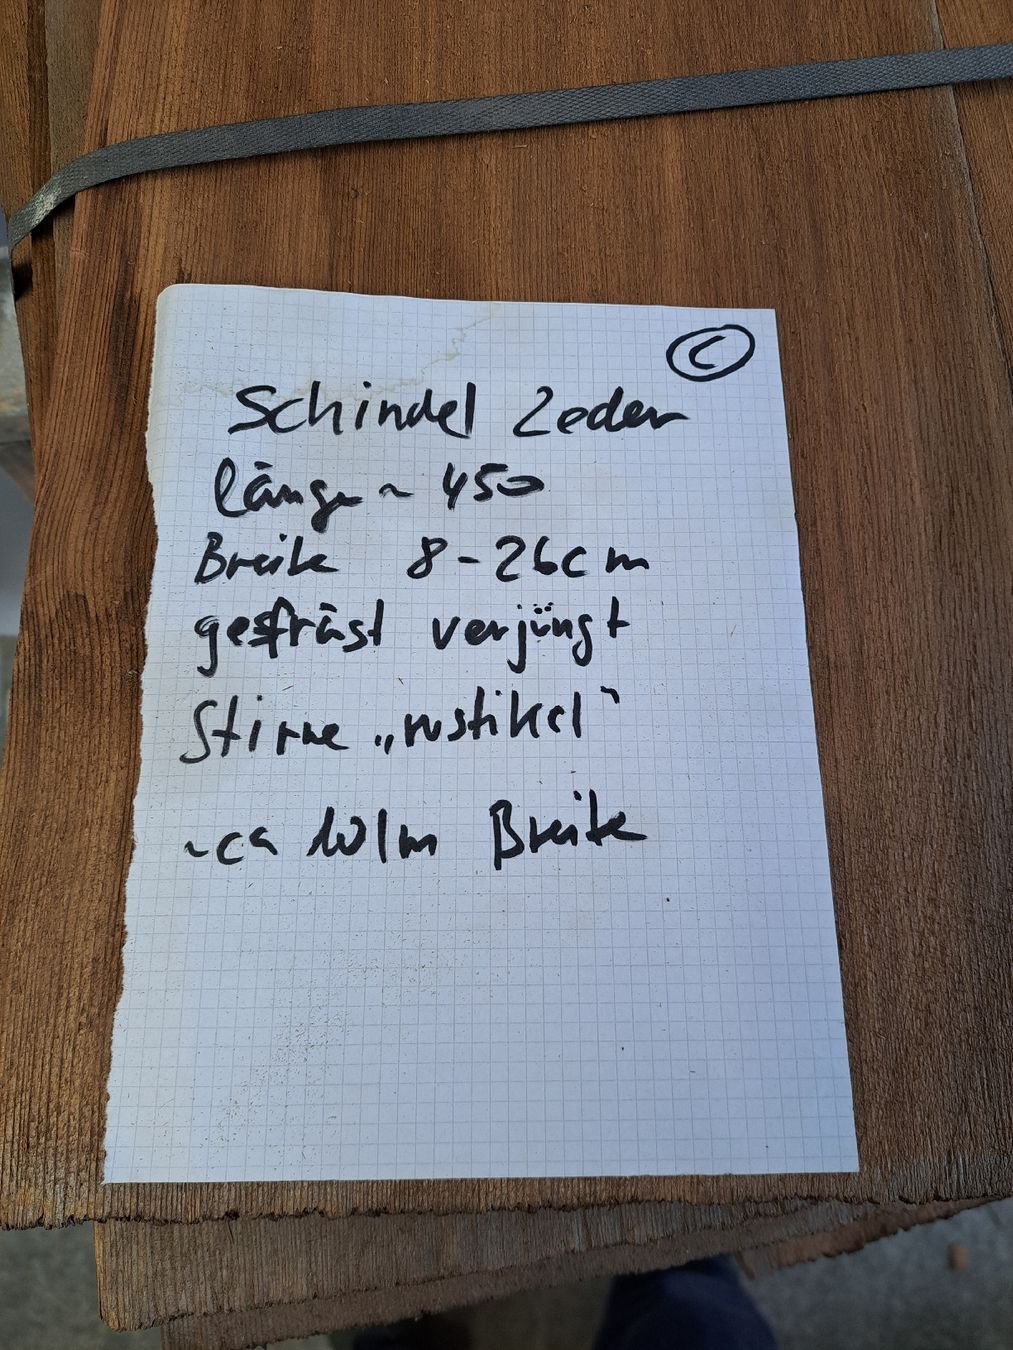 C
Schindel Zeder
länge ~ 450
Breite 8-26cm
gesfräst verjüngt
Stirne „rustikal"
~ca 10 lm Breite